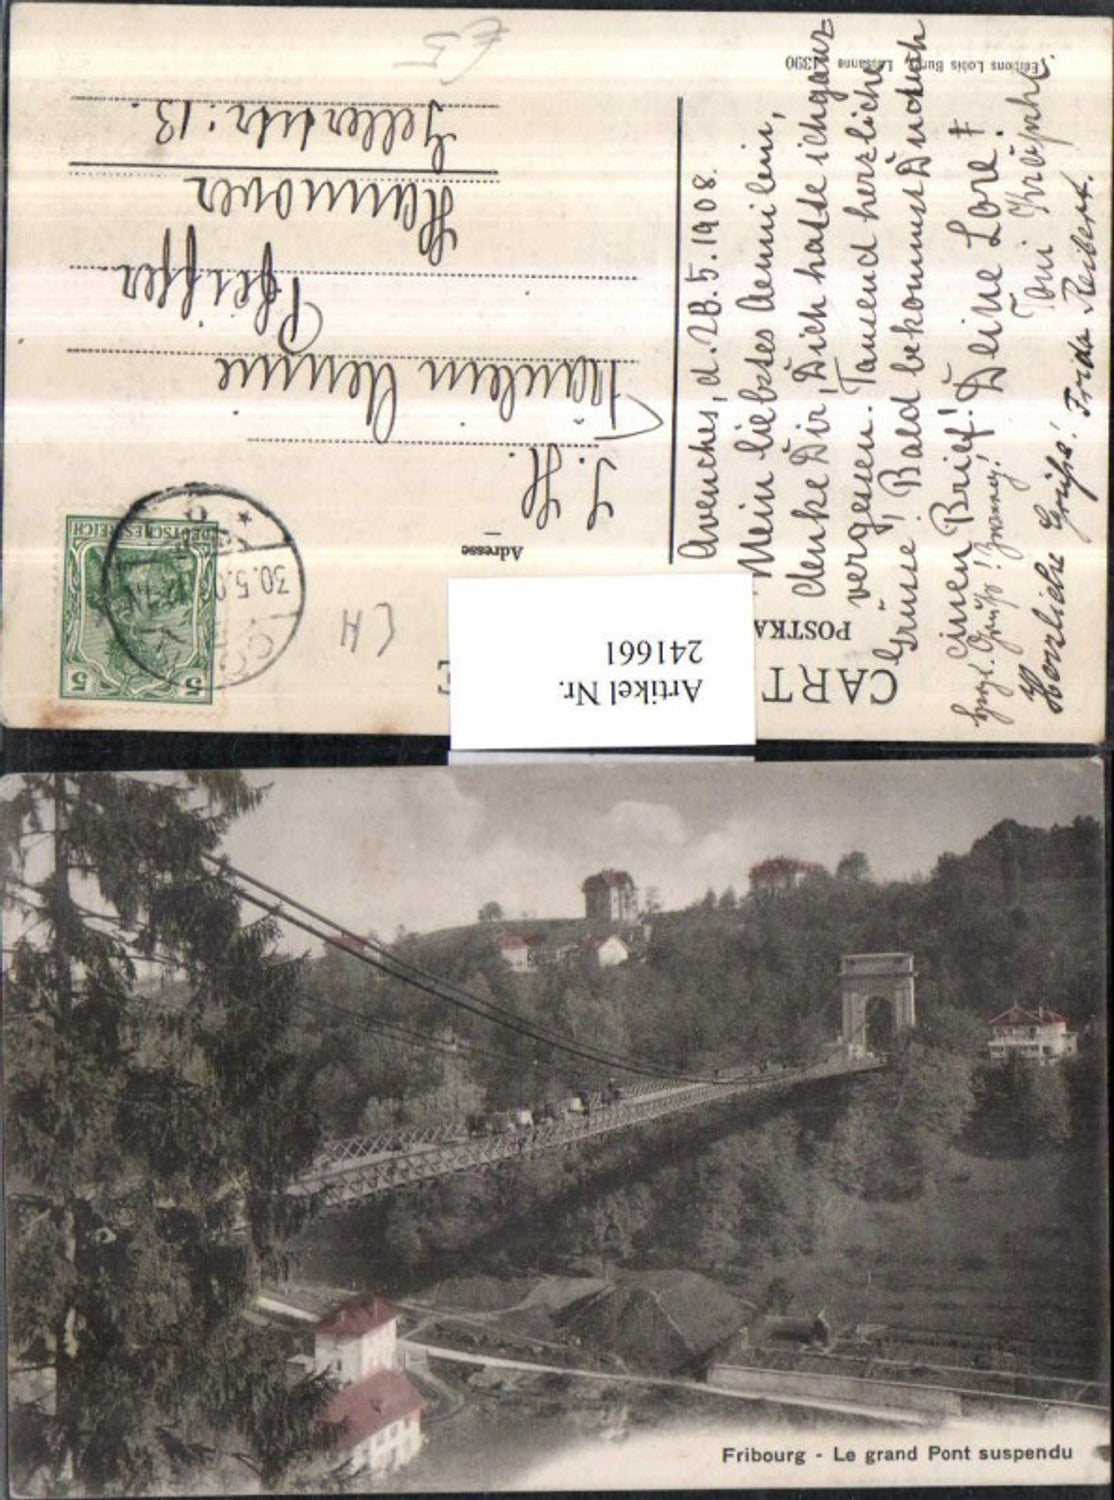 CART
POSTKA
Artikel Nr.
241661
Adresse
S. H.
Fräulein Aennie
Pfeiffer
Hannover
Gellertstr: 13.
DEUTSCHES REICH
5 5
30.5.0
CH
Avenches, d. 28. 5. 1908.
Mein liebstes Aennilein,
denke Dir, Dich hatte ich ganz
vergessen. Tausend herzliche
Grüsse! Bald bekommst Du auch
einen Brief! Deine Lore!
Herzl. Gruß!
Toni
Herzliche Grüße! Frida Reibert.
Editions Louis Burgy, Lausanne 21390
Fribourg - Le grand Pont suspendu